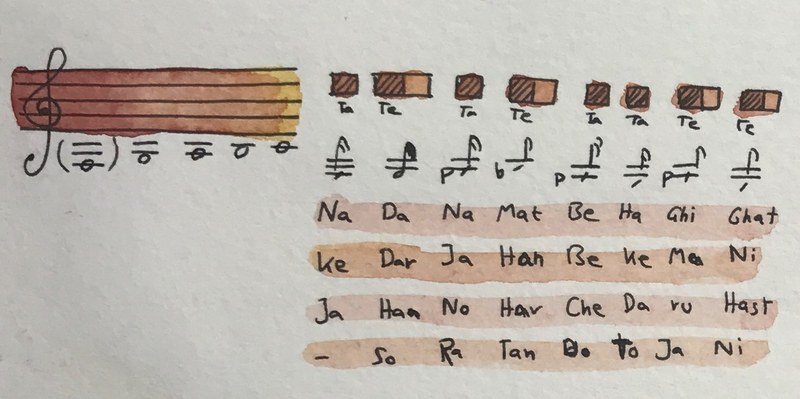 Ta Te Ta Te Ta Ta Te Te
Na Da Na Mat Be Ha Ghi Ghat
Ke Dar Ja Han Be Ke Ma Ni
Ja Haa No Har Che Da ru Hast
- So Ra Tan Do To Ja Ni